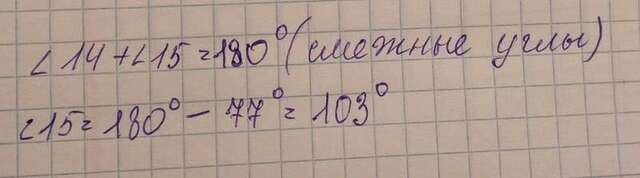 ∠14 + ∠15 = 180° (смежные углы)
∠15 = 180° - 77° = 103°